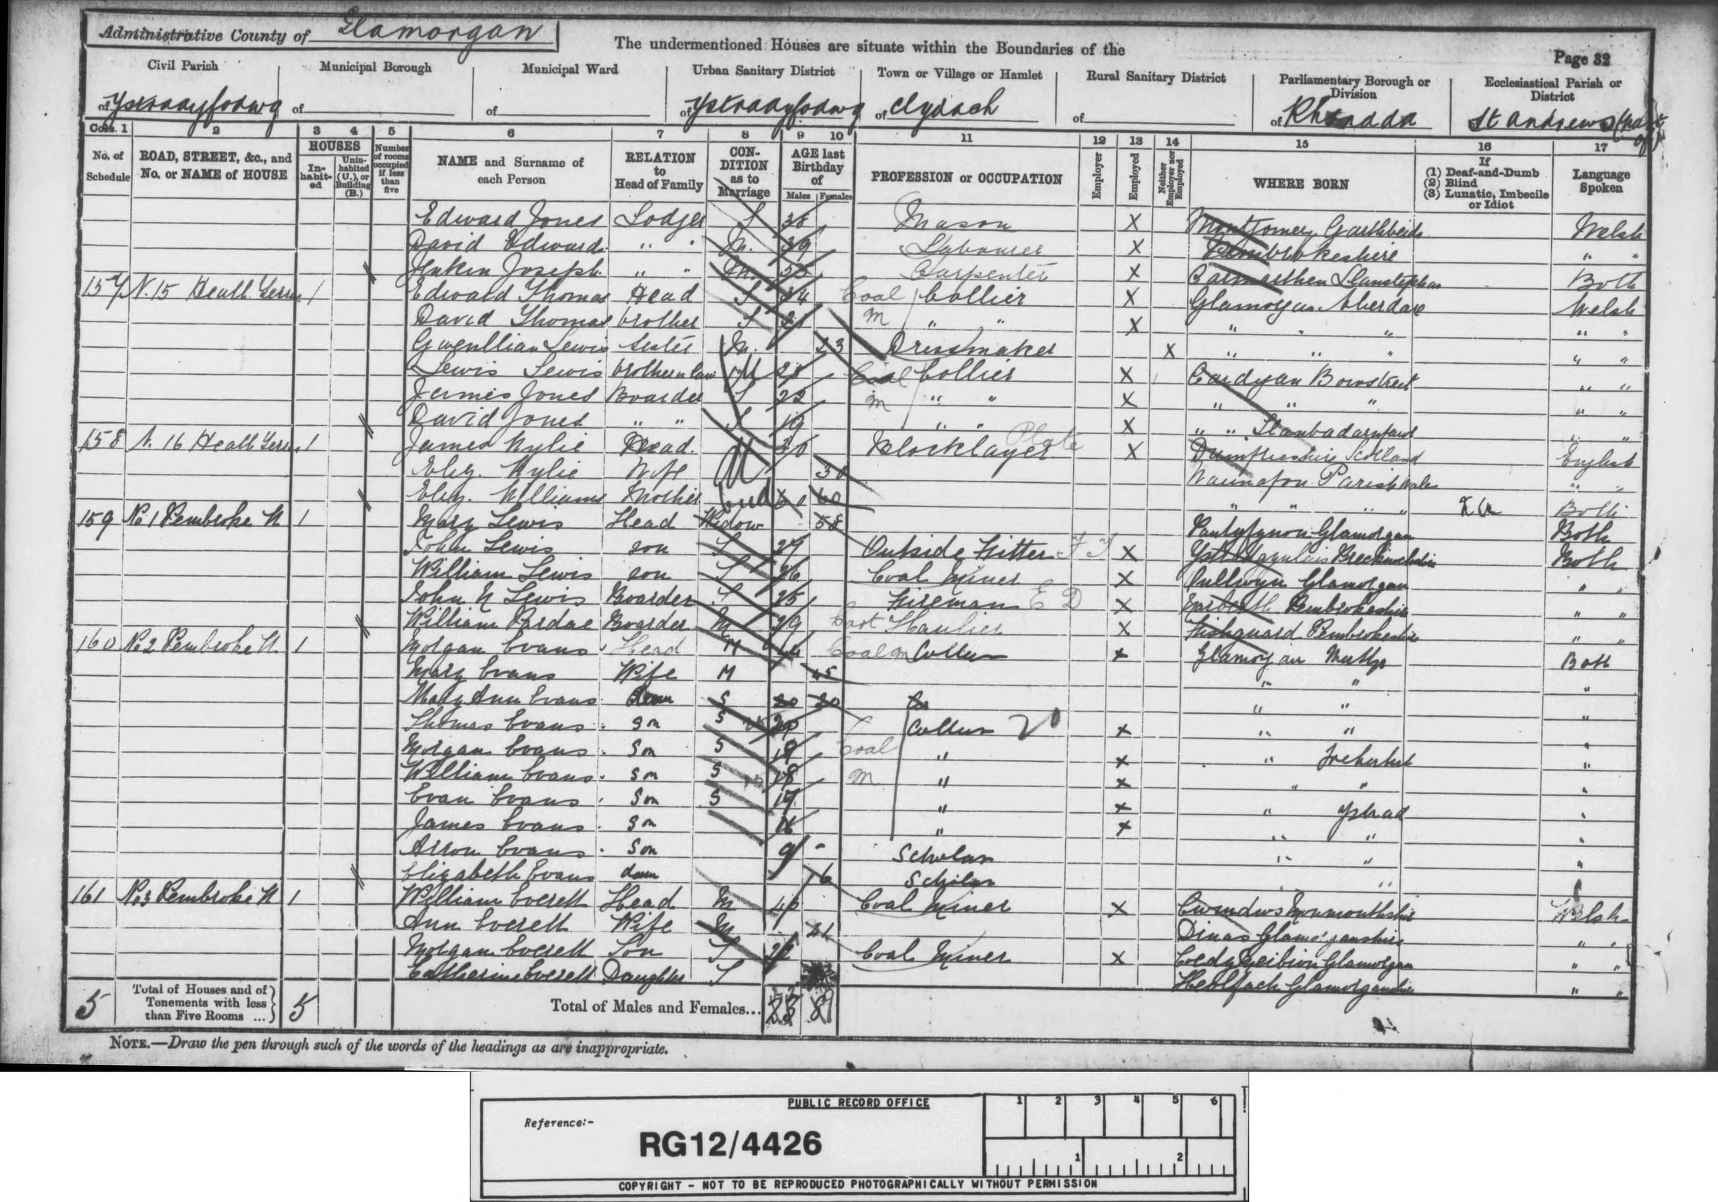 Administrative County of Glamorgan
The undermentioned Houses are situate within the Boundaries of the
Page 32
Civil Parish Municipal Borough Municipal Ward Urban Sanitary District Town or Village or Hamlet Rural Sanitary District Parliamentary Borough or Division Ecclesiastical Parish or District
of Ystradyfodwg of of of Ystradyfodwg of Clydach of of Rhondda of St Andrews
Cols. 1 2 3 4 5 6 7 8 9 10 11 12 13 14 15 16 17
No. of Schedule ROAD, STREET, &c., and No. or NAME of HOUSE HOUSES In-habit-ed Unin-habited (U.), or Building (B.) Number of rooms occupied if less than five NAME and Surname of each Person RELATION to Head of Family CON-DITION as to Marriage AGE last Birthday of Males Females PROFESSION or OCCUPATION Employer Employed Neither Employer nor Employed WHERE BORN If (1) Deaf-and-Dumb (2) Blind (3) Lunatic, Imbecile or Idiot Language Spoken
Edward Jones Lodger S Mason X Montgomery Welsh
David Edward " " M. 39 Labourer X Pembrokeshire " "
Jenkin Joseph " " M. Carpenter X Carmarthen Llanstephan Both
157 N. 15 Heath Terrace 1 Edward Thomas Head S 24 Coal Collier X Glamorgan Aberdare Welsh
David Thomas brother S M " " X " " " " "
Gwenllian Lewis sister M. 23 Dressmaker X " " " " "
Lewis Lewis brother in law M Coal Collier X Cardigan Bowstreet " "
James Jones Boarder S 22 m " " X " " " " "
David Jones " " S 19 " " X " " Llanbadarnfawr " "
158 N. 16 Heath Terrace 1 James Wylie Head. Blocklayer Plate X Dumfriesshire Scotland English
Eliz. Wylie Wife M 30 " "
Eliz. Williams Mother 60 " " " " Both
159 No 1 Pembroke St 1 Mary Lewis Head Widow 58 Glamorgan Both
John Lewis son S 27 Outside Fitter X Both
William Lewis son S 26 Coal Miner X Glamorgan " "
John Lewis Boarder S 25 Fireman X Pembrokeshire " "
William Boarder M 29 Haulier X Fishguard Pembrokeshire " "
160 No 2 Pembroke St 1 Morgan Evans Head M Coal m Cutter x Glamorgan Merthyr Both
Mary Evans Wife M 45 " " "
Mary Ann Evans daur S 20 20 " " "
Thomas Evans son S 20 Cutter 20 x " " "
Morgan Evans Son S Coal " x " Treherbert "
William Evans son S 18 m " x " " "
Evan Evans Son S 17 " x " Ystrad "
James Evans Son 16 " x " " "
Arron Evans Son 9 Scholar " " "
Elizabeth Evans daur 6 Scholar " " "
161 No 3 Pembroke St 1 William Everett Head M Coal Miner X Monmouthshire Welsh
Ann Everett Wife M Dinas Glamorganshire " "
Morgan Everett Son S Coal Miner X Glamorgan " "
Catherine Everett Daughter S Glamorganshire " "
5 Total of Houses and of Tenements with less than Five Rooms ... 5 Total of Males and Females...
NOTE.—Draw the pen through such of the words of the headings as are inappropriate.
PUBLIC RECORD OFFICE
1 2 3 4 5 6
Reference:-
RG12/4426
1 2
COPYRIGHT - NOT TO BE REPRODUCED PHOTOGRAPHICALLY WITHOUT PERMISSION